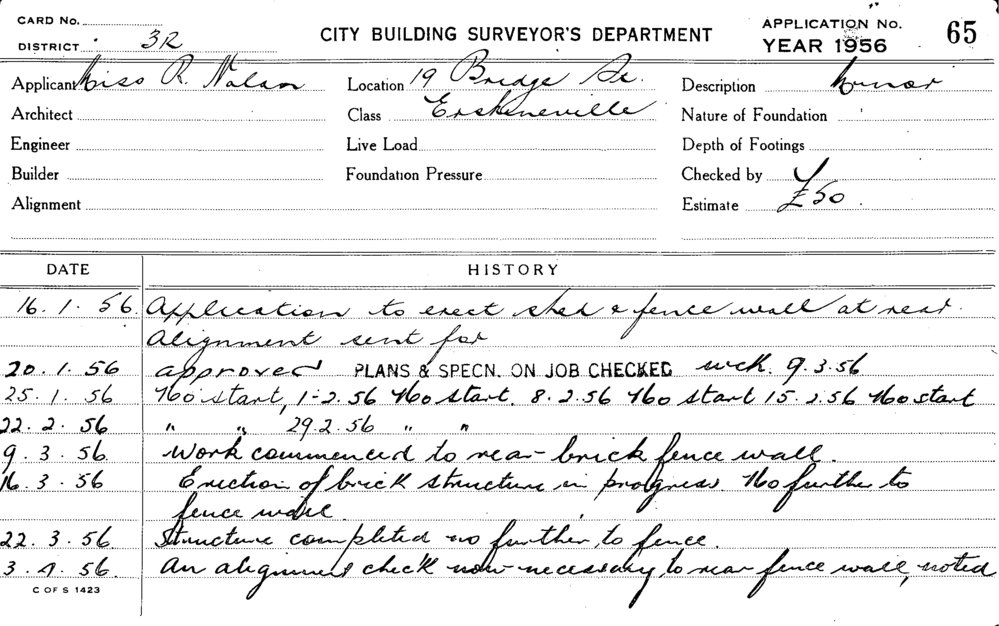 CARD No.
DISTRICT 3R
CITY BUILDING SURVEYOR'S DEPARTMENT
APPLICATION No. 65
YEAR 1956
Applicant Miss R. Nolan
Location 19 Bridge St.
Description Minor
Architect
Class Erskineville
Nature of Foundation
Engineer
Live Load
Depth of Footings
Builder
Foundation Pressure
Checked by
Alignment
Estimate £50.
DATE HISTORY
16.1.56. Application to erect shed & fence wall at rear.
Alignment sent for
20.1.56 approved PLANS & SPECN. ON JOB CHECKED 9.3.56
25.1.56 No start, 1-2.56 No start. 8.2.56 No start 15.2.56 No start
22.2.56 " " 29.2.56 " "
9.3.56. Work commenced to rear brick fence wall.
16.3.56 Erection of brick structure in progress. No further to
fence wall.
22.3.56. Structure completed no further to fence.
3.4.56. An alignment check now necessary to rear fence wall, noted
C OF S 1423